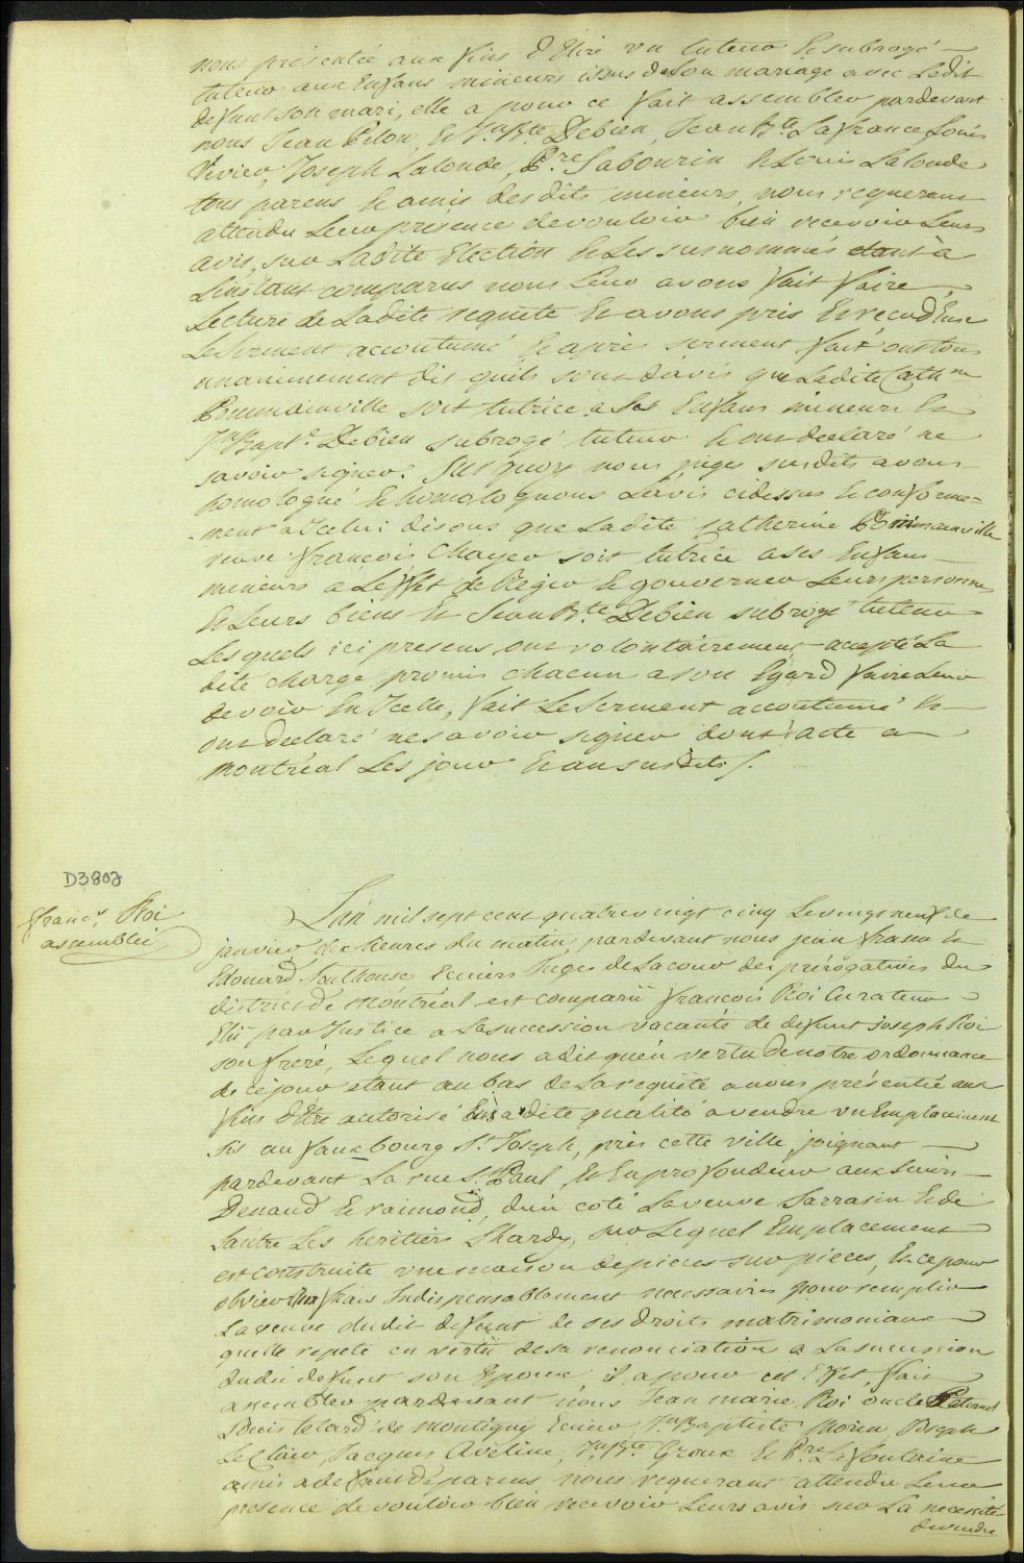 nous présentée aux fins d'Elire un tuteur & subrogé
tuteur aux Enfans mineurs issus de son mariage avec Ledit
defunt son mari, elle a pour ce fait assembler pardevant
nous Jean Pilon, & Jn. Bte. Debien, Jean Bte. Lafrance, Louis
Vivier, Joseph Lalonde, Pre. Sabourin & Louis Lalonde
tous parens & amis desdits mineurs, nous requerant
attendu Leur présence de vouloir bien recevoir Leurs
avis, sur Ladite Election & Les susnommés etant à
L'instant comparus nous Leur avons fait faire
Lecture de Ladite requête & avons pris & reçu d'Eux
Le Serment accoutumé & après serment fait ont tous
unanimement dit quils sont d'avis que Ladite Cathne
Pominainville soit tutrice a Ses Enfans mineurs &
Jn Bapte. Debien subrogé tuteur & ont declaré ne
savoir signer. Sur quoy nous juges susdits avons
homologué & homologuons L'avis cidessus & conforme-
-ment a Icelui disons que Ladite Catherine Pominainville
veuve françois Chayer soit tutrice a ses Enfans
mineurs a L'effet de Regir & gouverner Leurs personnes
& Leurs biens & Jean Bte. Debien subrogé tuteur
Lesquels ici presens ont volontairement accepté La
dite charge promis chacun a son Egard faire Leur
devoir En Icelle, fait Le Serment accoutumé &
ont declaré ne savoir signer dont acte a
Montréal Les jour & an susdits /.
D3803
françs. Roi
assemblée
L'an mil sept cent quatrevingt cinq Le vingt neuf de
janvier dix heures du matin, pardevant nous jean fraser &
Edouard Southouse Ecuiers Juges de La cour des prérogatives du
district de Montréal est comparu françois Roi Curateur
Elu par Justice a La succession vacante de defunt joseph Roi
son frere, Lequel nous a dit qu'en vertu de notre ordonnance
de cejour etant au bas de La requête a nous présentée aux
fins d'Etre autorisé Ensadite qualité a vendre un Emplacement
sis au fauxbourg St. Joseph, près cette ville joignant
pardevant La rue St. Paul, & En profondeur aux Sieurs
Denaud & raimond, d'un coté La veuve Sarrasin & de
L'autre Les heritiers Lhardy, sur Lequel Emplacement
est construite une maison de pieces sur pieces, & ce pour
obvier aux frais Indispensablement necessaires pour remplir
La veuve dudit defunt de ses droits matrimoniaux
quelle repete en vertu de sa renonciation a La succession
dudit defunt son Epoux, il a pour cet Effet, fait
assembler pardevant nous Jean marie Roi oncle Paternel
Louis telard de Montigny Ecuier, Jn Baptiste Morin, Joseph
Le Clair, Jacques Aveline, Jn Bte. Groux & Pre. Lafontaine
amis a defaut de parens, nous requerant attendu Leur
presence de vouloir bien recevoir Leurs avis sur La necessité
de vendre